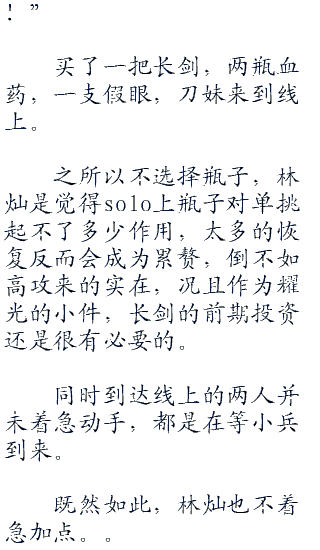 ！”
买了一把长剑，两瓶血
药，一支假眼，刀妹来到线
上。
之所以不选择瓶子，林
灿是觉得solo上瓶子对单挑
起不了多少作用，太多的恢
复反而会成为累赘，倒不如
高攻来的实在，况且作为耀
光的小件，长剑的前期投资
还是很有必要的。
同时到达线上的两人并
未着急动手，都是在等小兵
到来。
既然如此，林灿也不着
急加点。。